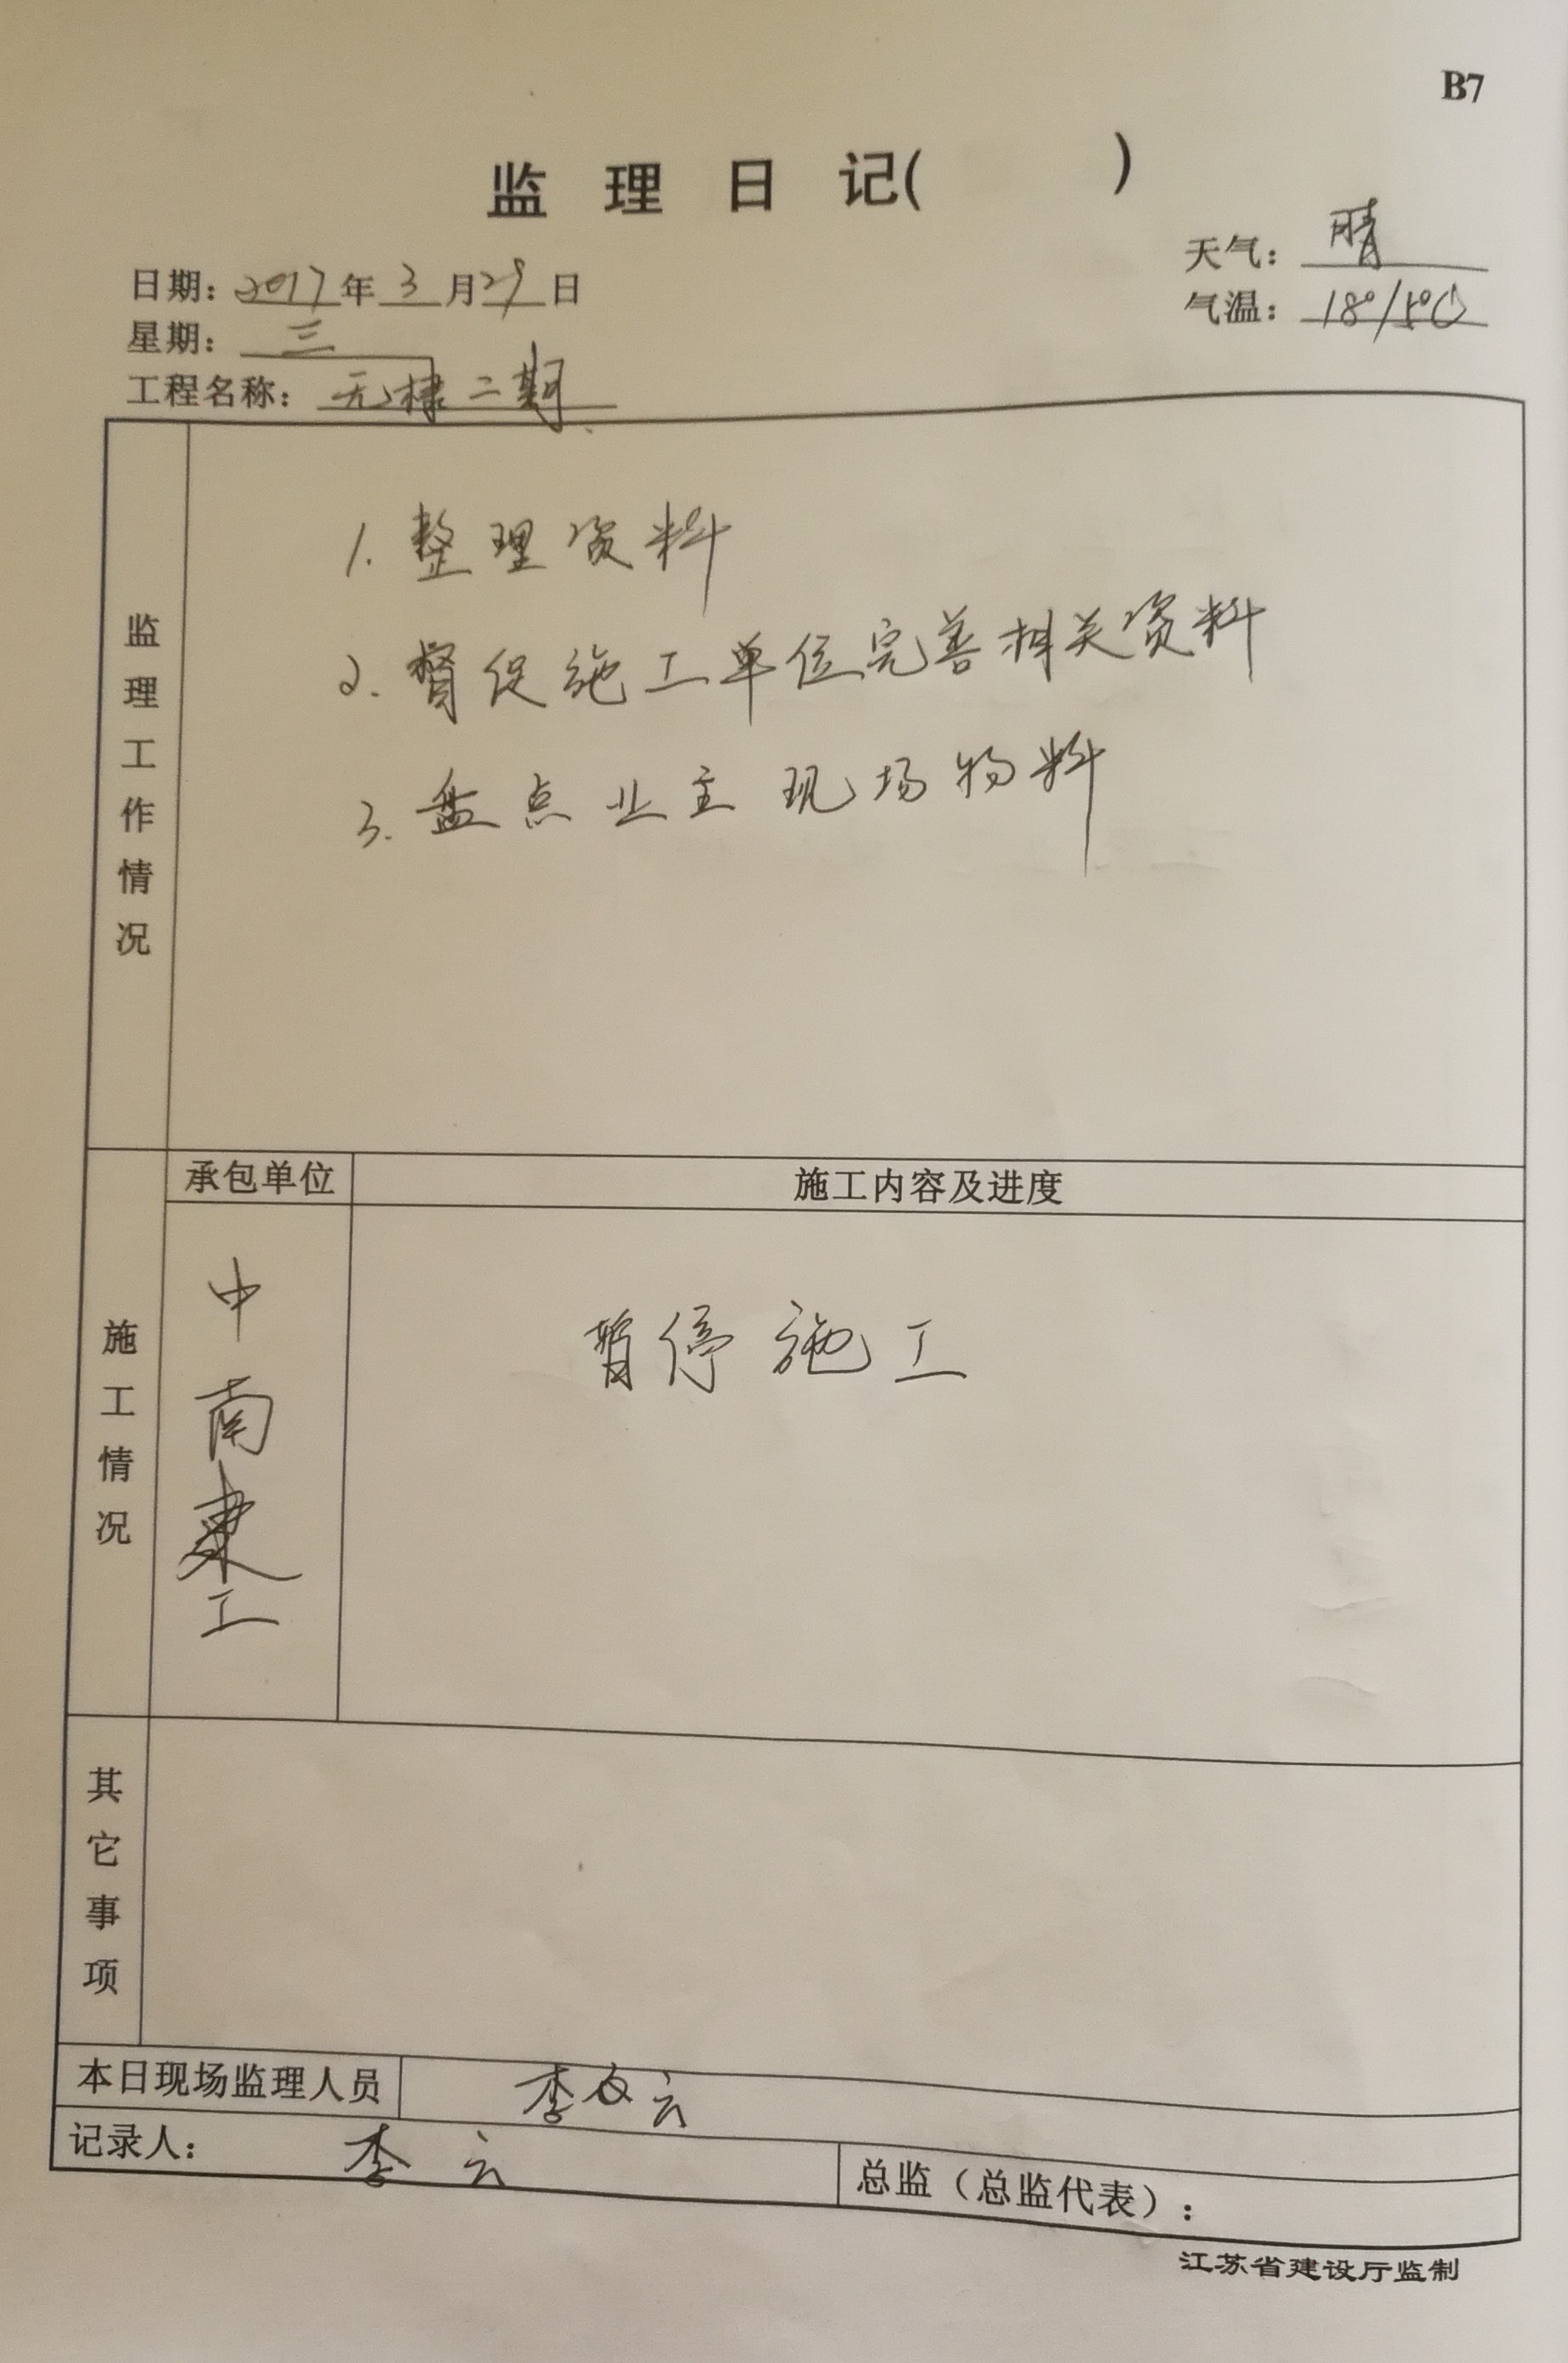 B7
监理日记(      )
日期: 2017年3月29日
天气: 晴
星期: 三
气温: 18°/5℃
工程名称: 无棣二期
监理工作情况
1. 整理资料
2. 督促施工单位完善相关资料
3. 盘点业主现场物料
施工情况
承包单位
施工内容及进度
中南建工
暂停施工
其它事项
本日现场监理人员 李 云
记录人: 李 云
总监（总监代表）:
江苏省建设厅监制